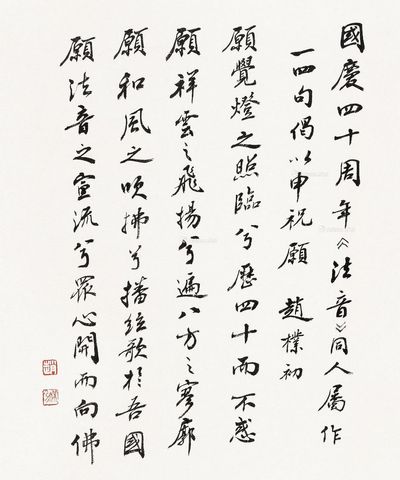 國慶四十周年《法音》同人屬作
一四句偈以申祝願 趙樸初
願覺燈之照臨兮歷四十而不惑
願祥雲之飛揚兮遍八方之寥廓
願和風之吹拂兮播絃歌於吾國
願法音之宣流兮眾心開而向佛